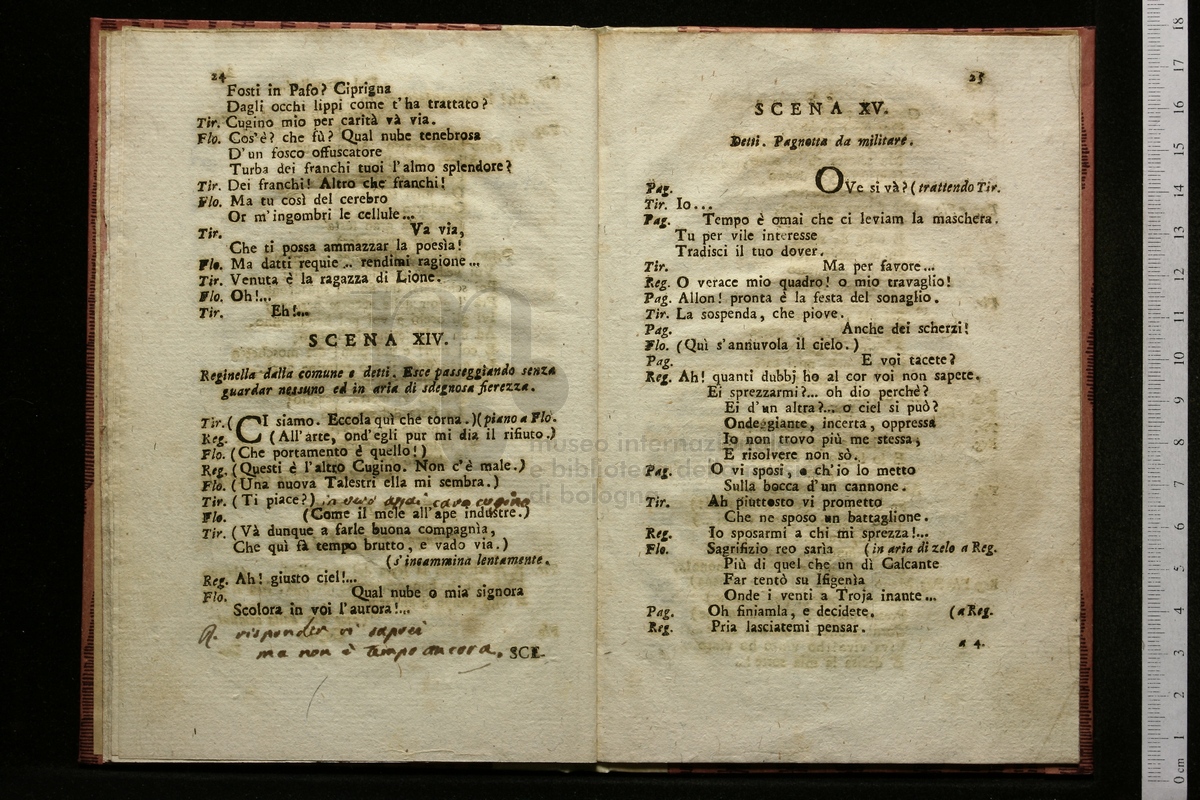 24
Fosti in Pafo? Ciprigna
Dagli occhi lippi come t'ha trattato?
Tir. Cugino mio per carità và via.
Flo. Cos'è? che fù? Qual nube tenebrosa
D'un fosco offuscatore
Turba dei franchi tuoi l'almo splendore?
Tir. Dei franchi! Altro che franchi!
Flo. Ma tu così del cerebro
Or m'ingombri le cellule...
Tir. Va via,
Che ti possa ammazzar la poesìa!
Flo. Ma datti requie .. rendimi ragione...
Tir. Venuta è la ragazza di Lione.
Flo. Oh!...
Tir. Eh!...
SCENA XIV.
Reginella dalla comune e detti. Esce passeggiando senza
guardar nessuno ed in aria di sdegnosa fierezza.
Tir. (CI siamo. Eccola quì che torna.)(piano a Flo.
Reg. (All'arte, ond'egli pur mi dia il rifiuto.)
Flo. (Che portamento è quello!)
Reg. (Questi è l'altro Cugino. Non c'è male.)
Flo. (Una nuova Talestri ella mi sembra.)
Tir. (Ti piace?) in vero assai caro cugino
Flo. (Come il mele all'ape industre.)
Tir. (Và dunque a farle buona compagnìa,
Che quì fà tempo brutto, e vado via.)
(s'incammina lentamente.
Reg. Ah! giusto ciel!...
Flo. Qual nube o mia signora
Scolora in voi l'aurora!...
R. risponder vi saprei
ma non è tempo ancora. SCE-
25
SCENA XV.
Detti. Pagnotta da militare.
Pag. OVe si và? (trattendo Tir.
Tir. Io...
Pag. Tempo è omai che ci leviam la maschera.
Tu per vile interesse
Tradisci il tuo dover.
Tir. Ma per favore...
Reg. O verace mio quadro! o mio travaglio!
Pag. Allon! pronta è la festa del sonaglio.
Tir. La sospenda, che piove.
Pag. Anche dei scherzi!
Flo. (Quì s'annuvola il cielo.)
Pag. E voi tacete?
Reg. Ah! quanti dubbj ho al cor voi non sapete.
Ei sprezzarmi?... oh dio perchè?
Ei d'un altra?... o ciel si può?
Ondeggiante, incerta, oppressa
Io non trovo più me stessa,
E risolvere non sò.
Pag. O vi sposi, o ch'io lo metto
Sulla bocca d'un cannone.
Tir. Ah piuttosto vi prometto
Che ne sposo un battaglione.
Reg. Io sposarmi a chi mi sprezza!...
Flo. Sagrifizio reo sarìa (in aria di zelo a Reg.
Più di quel che un dì Calcante
Far tentò su Ifigenìa
Onde i venti a Troja inante...
Pag. Oh finiamla, e decidete. (a Reg.
Reg. Pria lasciatemi pensar.
a 4.